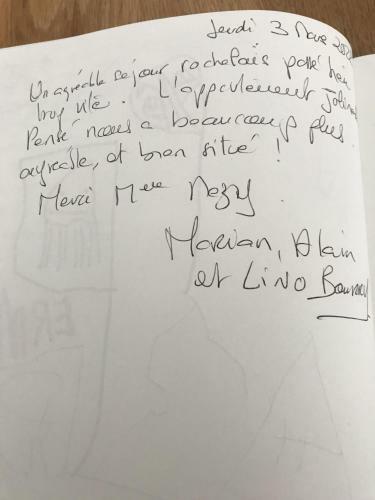 Jeudi 3 Mars
Un agréable séjour rochelais passé bien
trop vite. L'appartement joliment
Pensé nous a beaucoup plus.
agréable, et bien situé !
Merci Mme
Marian, Alain
et LiNO